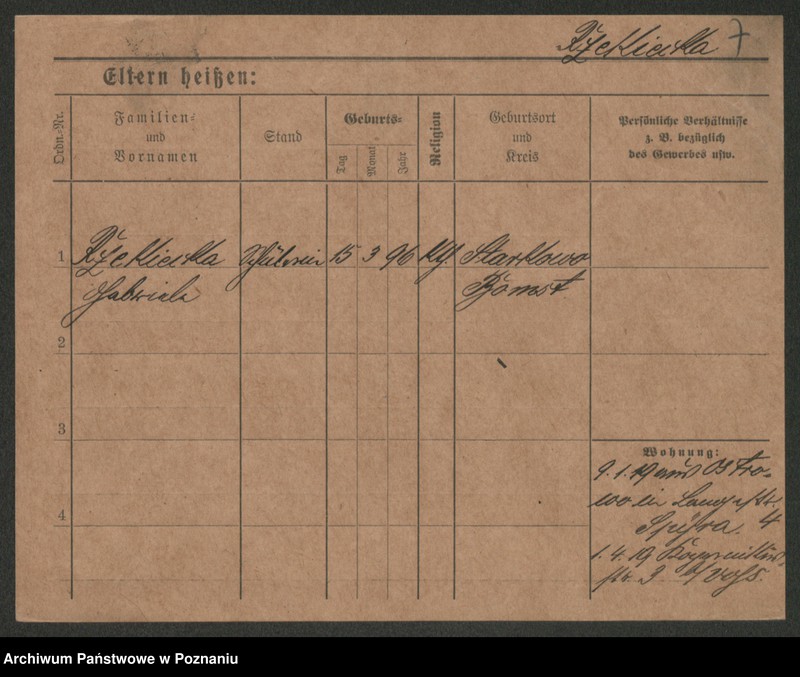 Rżekiecka 7
Eltern heißen:
Ordn.-Nr.
Familien-
und
Vornamen
Stand
Geburts-
Tag
Monat
Jahr
Religion
Geburtsort
und
Kreis
Persönliche Verhältnisse
z. B. bezüglich
des Gewerbes usw.
1 Rżekiecka Schülerin 15 3 96 kth Starkowo
Gabriele Bomst
2
3
4
Wohnung:
9. 1. 19 aus Ostro-
wo in Langestr.
4
1. 4. 19
str.
Archiwum Państwowe w Poznaniu